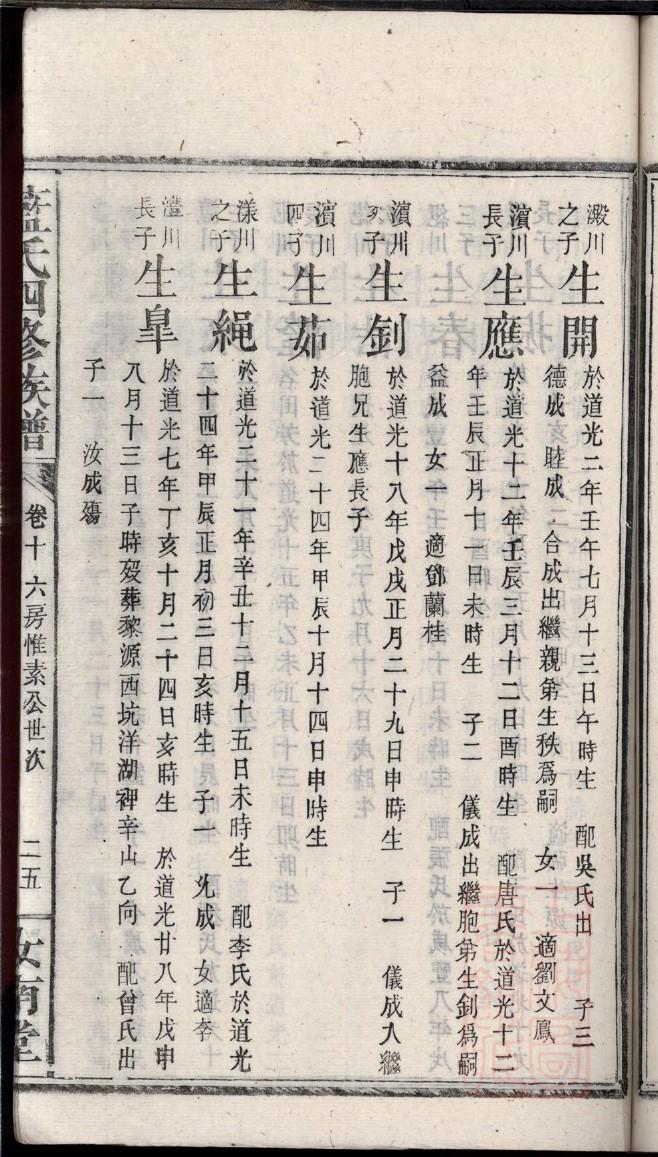 澱川之子
生開
於道光二年壬午七月十三日午時生　配吳氏出　子三
德成　睦成　合成出繼親弟生秩爲嗣　女一　適劉文鳳
濵川長子
生應
於道光十二年壬辰三月十二日酉時生　配唐氏於道光十二
年壬辰正月十一日未時生　子二　儀成出繼胞弟生釗爲嗣
益成　女一　適鄧蘭桂
濵川次子
生釗
於道光十八年戊戌正月二十九日申時生　子一　儀成入繼
胞兄生應長子
濵川四子
生茹
於道光二十四年甲辰十月十四日申時生
漾川之子
生繩
於道光二十一年辛丑十二月十五日未時生　配李氏於道光
二十四年甲辰正月初三日亥時生　子一　光成　女適李
澧川長子
生臯
於道光七年丁亥十月二十四日亥時生　於道光廿八年戊申
八月十三日子時歿葬黎源西坑洋湖裡辛山乙向　配曾氏出
子一　汝成殤
藍氏四修族譜
卷十　六房惟素公世次
二五
汝南堂